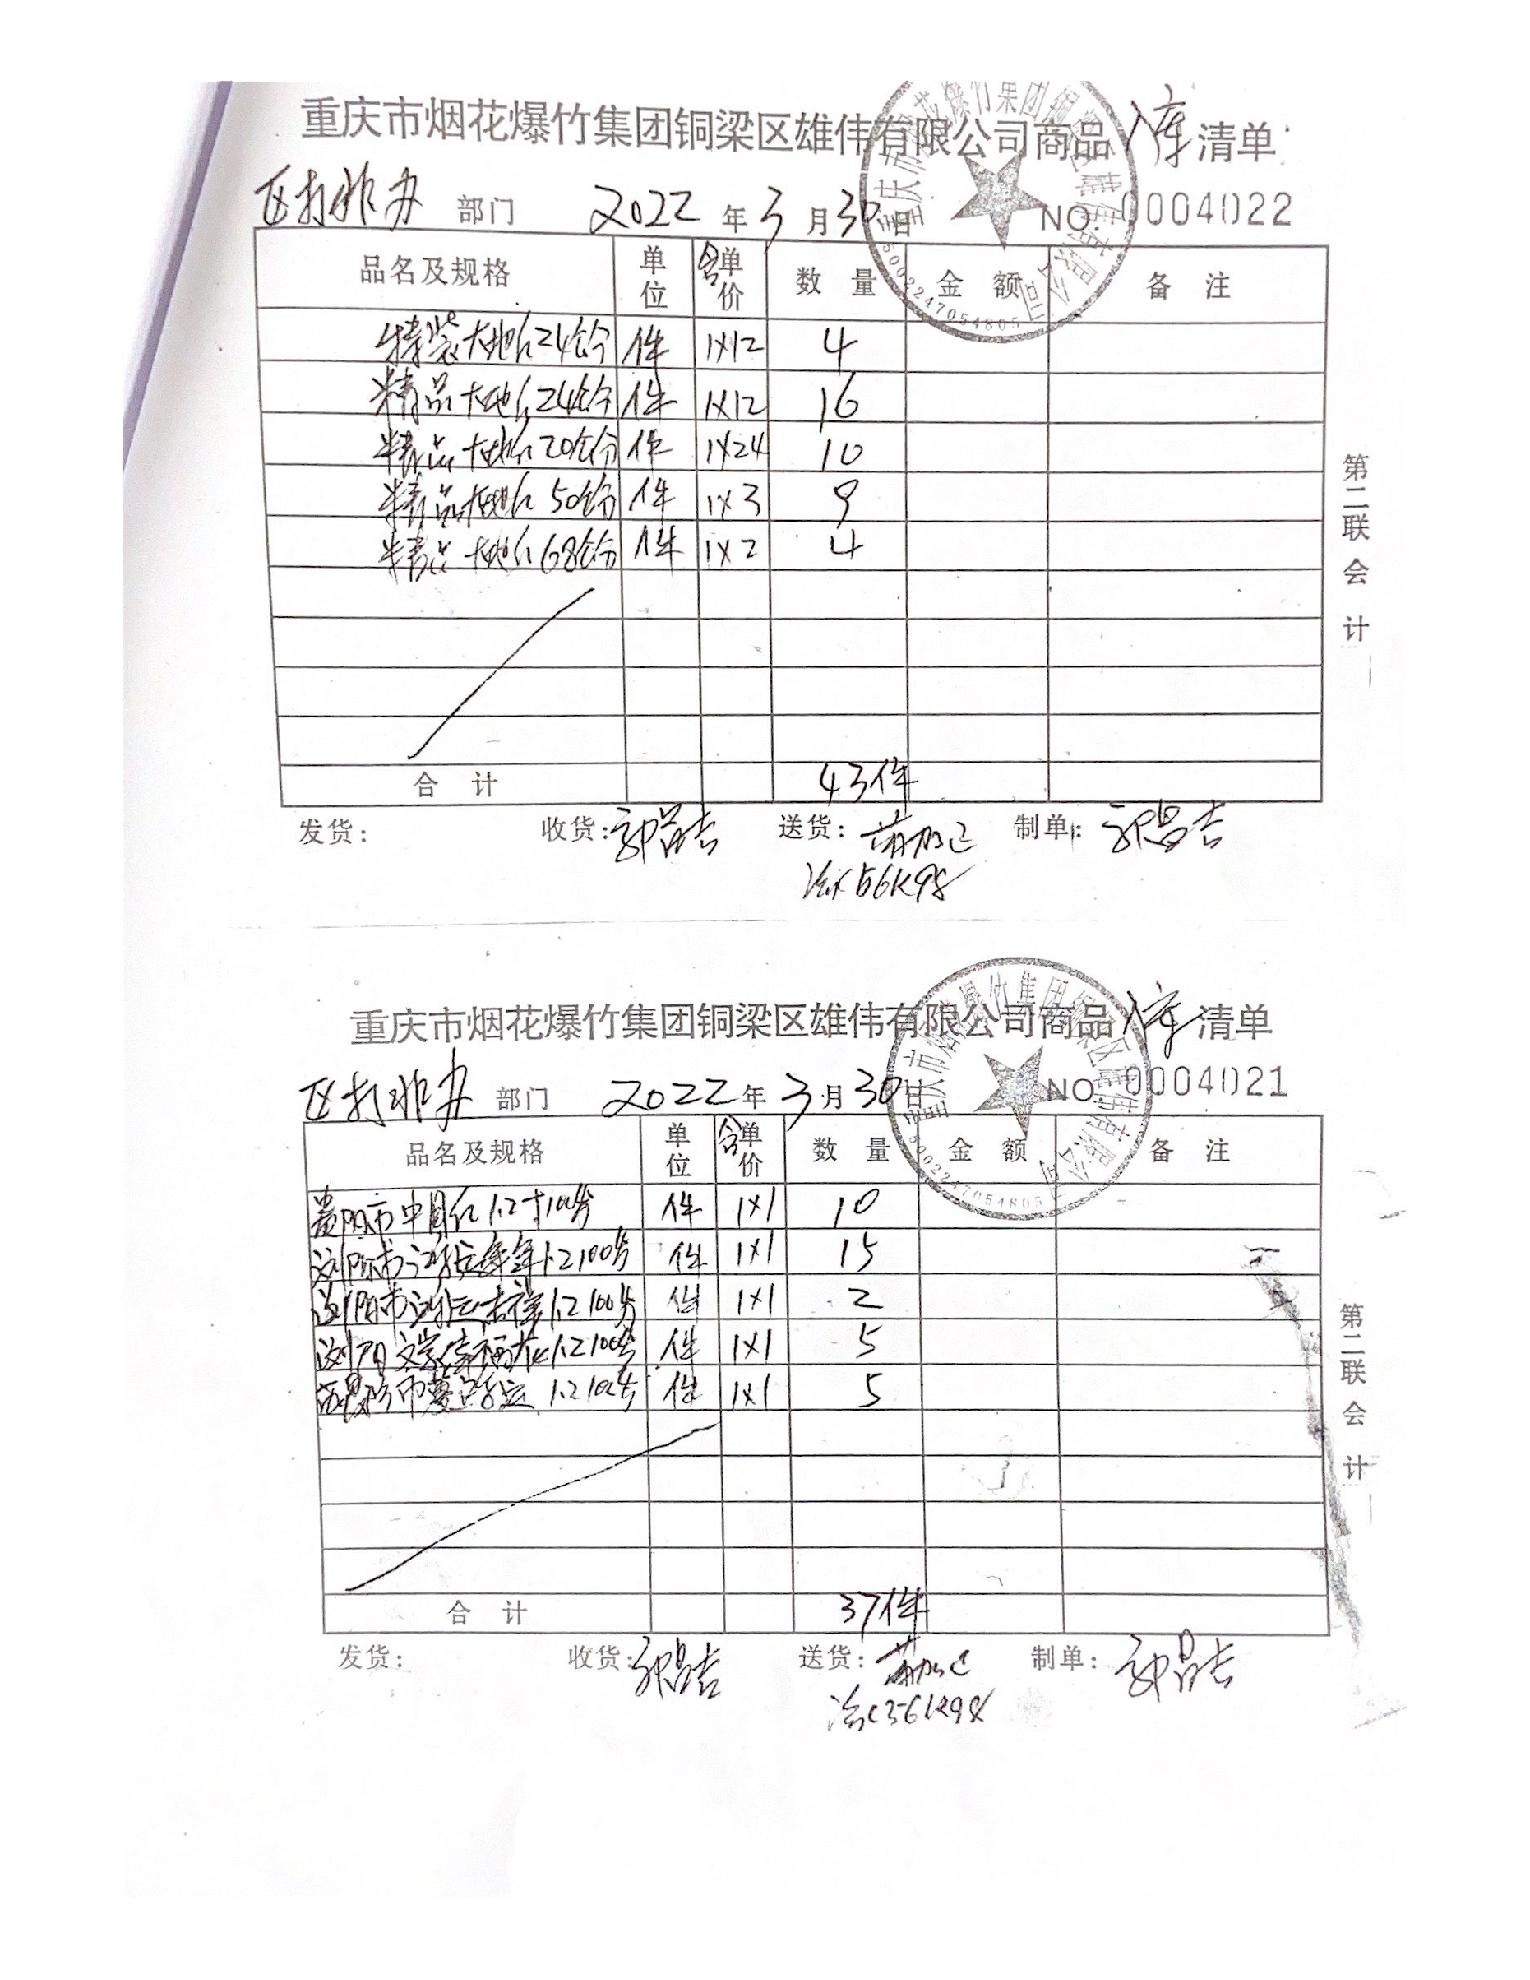 重庆市烟花爆竹集团铜梁区雄伟有限公司商品入库清单
区打非办 部门 2022 年 3 月 30 日 NO. 0004022
品名及规格 单位 含 单价 数量 金额 备注
特装大地红24饼 件 1x12 4
精品大地红24饼 件 1x12 16
精品大地红20饼 件 1x24 10
精品大地红50饼 件 1x3 9
精品大地红68饼 件 1x2 4
合计 43件
第二联 会计
发货: 收货:郭昌吉 送货: 制单:郭昌吉
渝C56K98
重庆市烟花爆竹集团铜梁区雄伟有限公司
5002247054805
重庆市烟花爆竹集团铜梁区雄伟有限公司商品入库清单
区打非办 部门 2022 年 3 月 30 日 NO. 0004021
品名及规格 单位 含 单价 数量 金额 备注
市中国红1.2寸100发 件 1x1 10
浏阳市 年年1.2 100发 件 1x1 15
浏阳市 吉祥1.2 100发 件 1x1 2
浏阳 幸福花1.2 100发 件 1x1 5
市 1.2 100发 件 1x1 5
合计 37件
第二联 会计
发货: 收货:郭昌吉 送货: 制单:郭昌吉
渝C56K98
重庆市烟花爆竹集团铜梁区雄伟有限公司
5002247054805